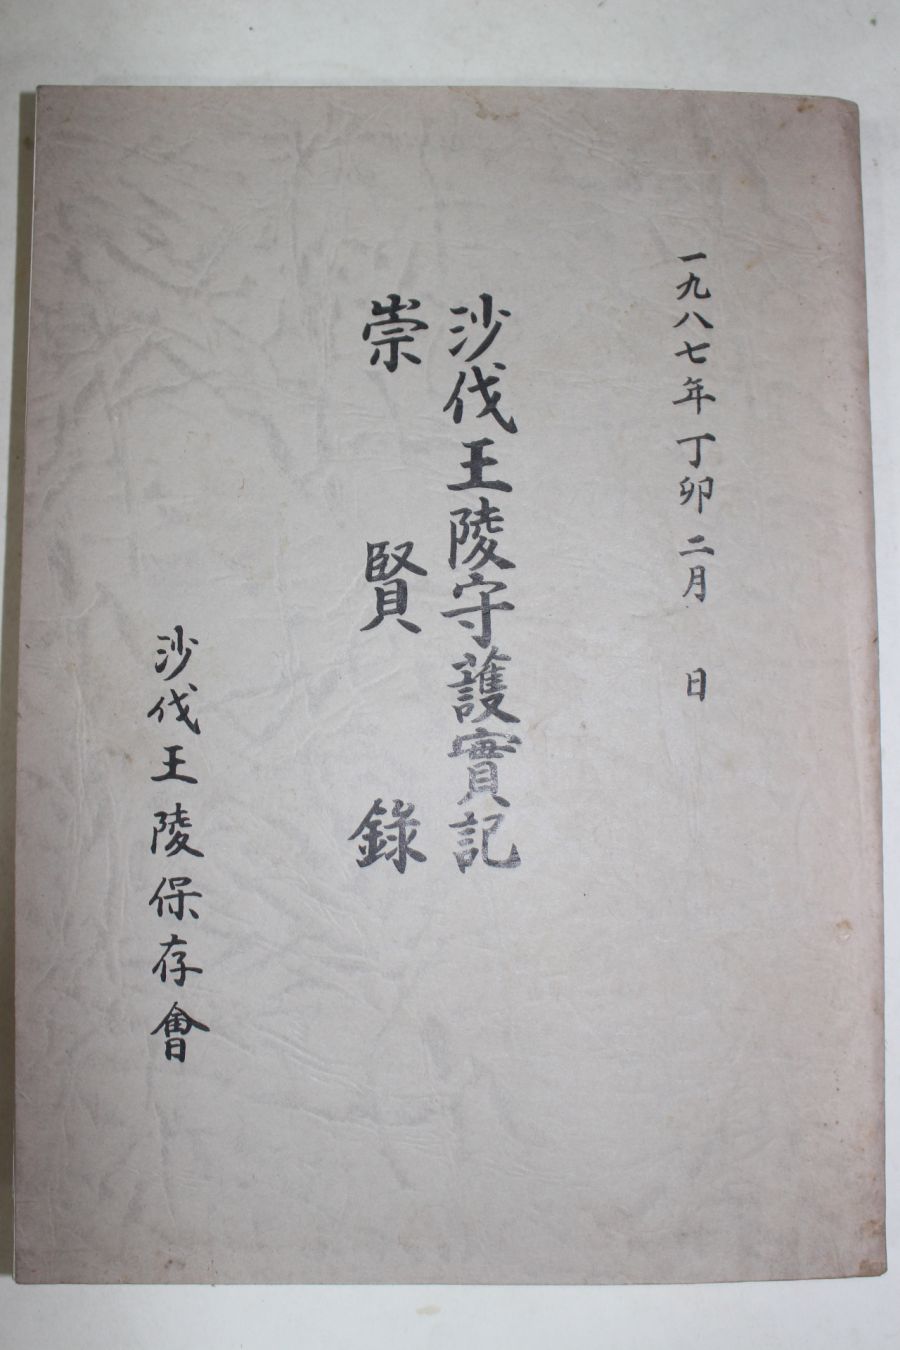 一九八七年 丁卯 二月 日
沙伐王陵守護實記
崇賢錄
沙伐王陵保存會